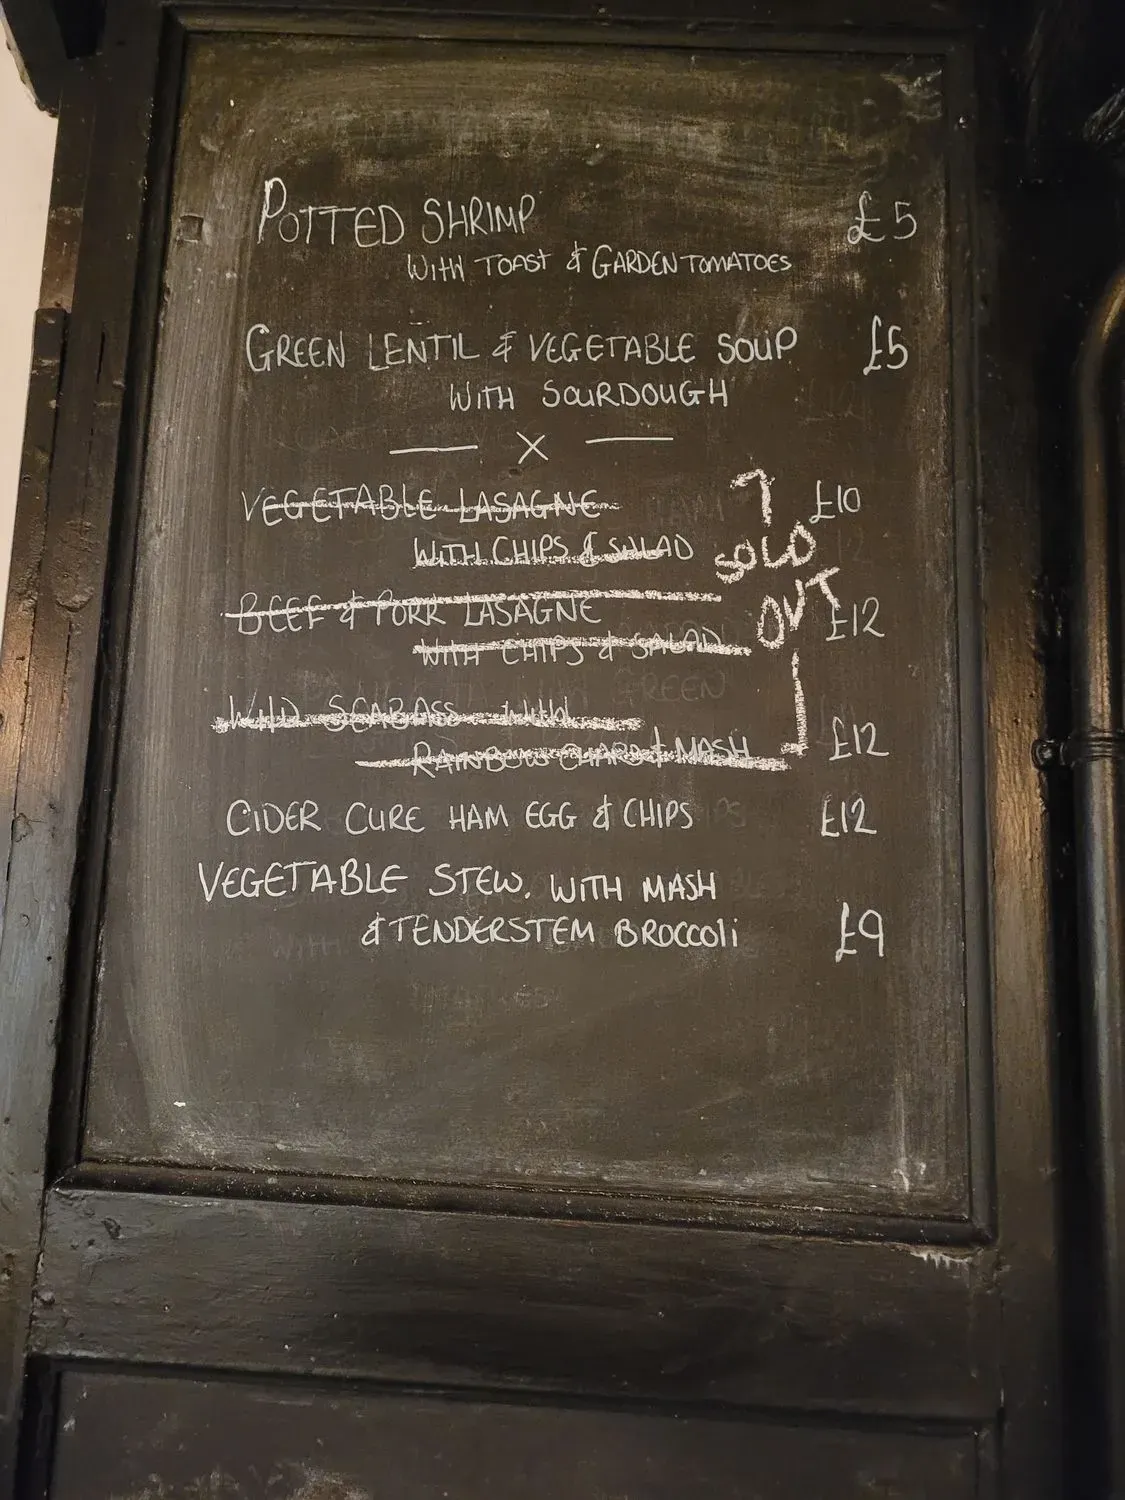 POTTED SHRIMP £5
WITH TOAST & GARDEN TOMATOES
GREEN LENTIL & VEGETABLE SOUP £5
WITH SOURDOUGH
— X —
VEGETABLE LASAGNE £10
WITH CHIPS & SALAD
SOLD
BEEF & PORK LASAGNE £12
OUT
WITH CHIPS & SALAD
WILD SEABASS WITH
RAINBOW CHARD & MASH £12
CIDER CURE HAM EGG & CHIPS £12
VEGETABLE STEW. WITH MASH
& TENDERSTEM BROCCOLI £9